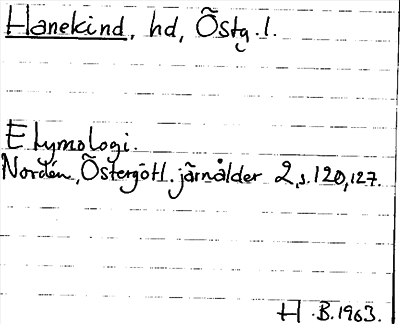 Hanekind, hd, Östg. l.
Etymologi.
Nordén, Östergötl. järnålder 2, s. 120, 127.
H. B. 1963.